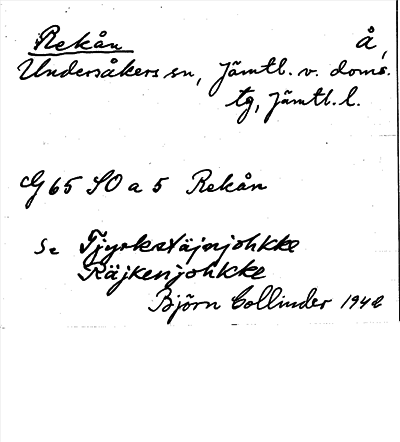 Rekån Å,
Undersåkers sn, Jämtl. v. doms.
tg, Jämtl. l.
G 65 SO a 5 Rekån
Se Tjyrketäjnjohkke
Räjkenjohkke
Björn Collinder 1942